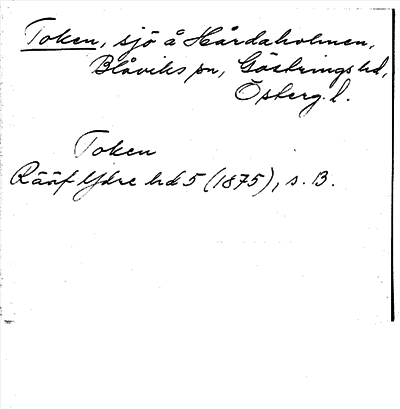 Token, sjö å Hårdaholmen,
Blåviks sn, Göstrings hd,
Österg. l.
Token
Rääf Ydre hd 5 (1875), s. 13.